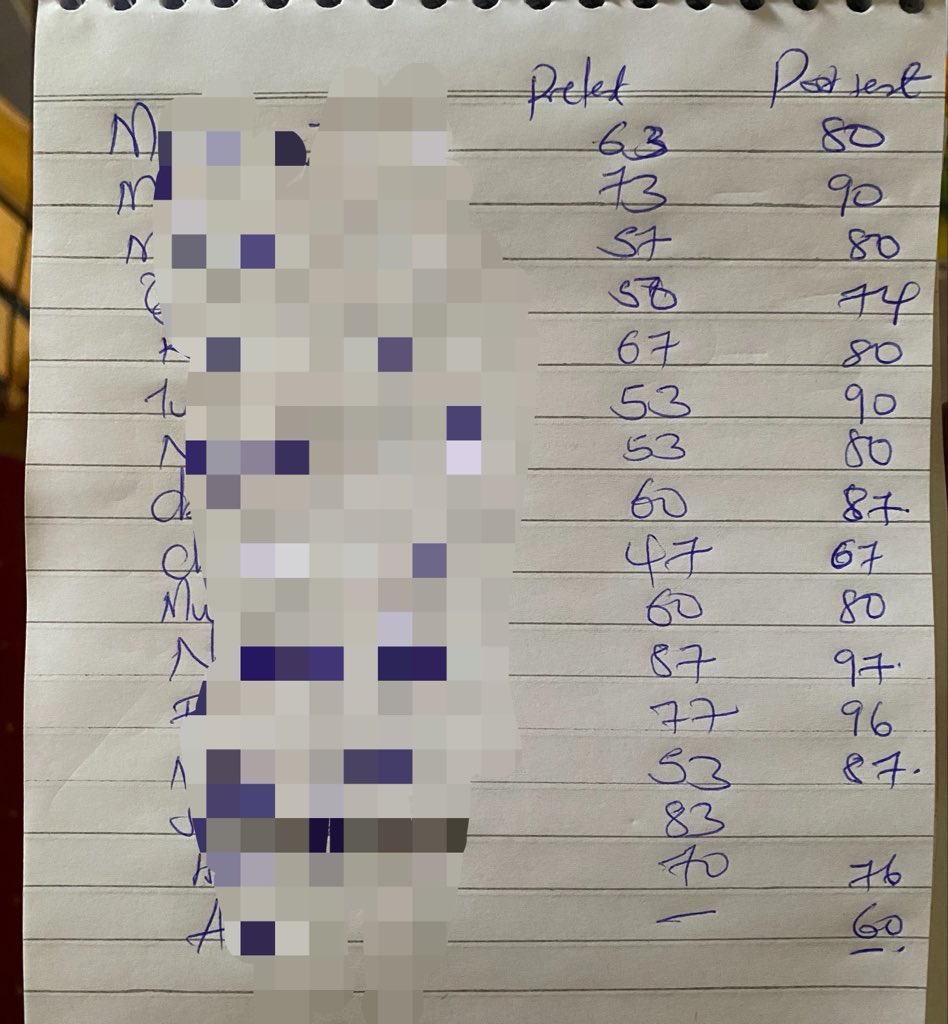 Pretest Post test
M 63 80
M 73 90
N 57 80
58 74
67 80
53 90
N 53 80
d 60 87.
d 47 67
Mu 60 80
N 87 97.
I 77 96
53 87.
d 83
A 70 76
A — 60